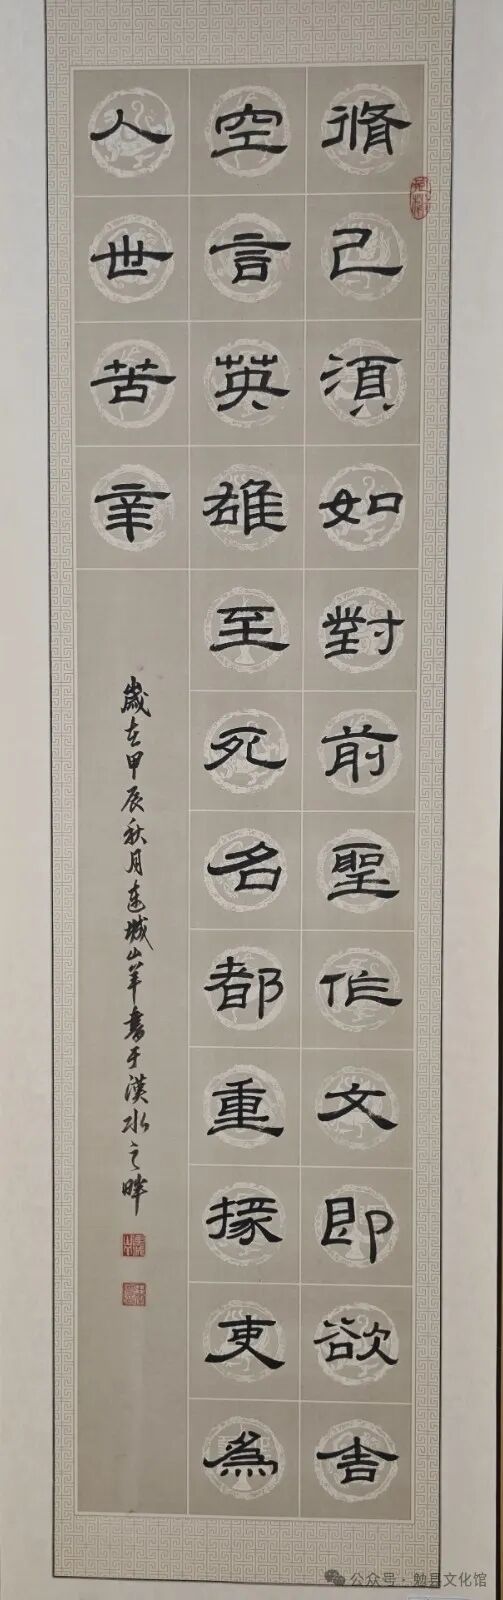 脩己湏如對前聖作文即欲舍
空言英雄至死名都重掾吏為
人世苦辛
歲在甲辰秋月連城山羊書于漢水之畔
公众号·勉县文化馆